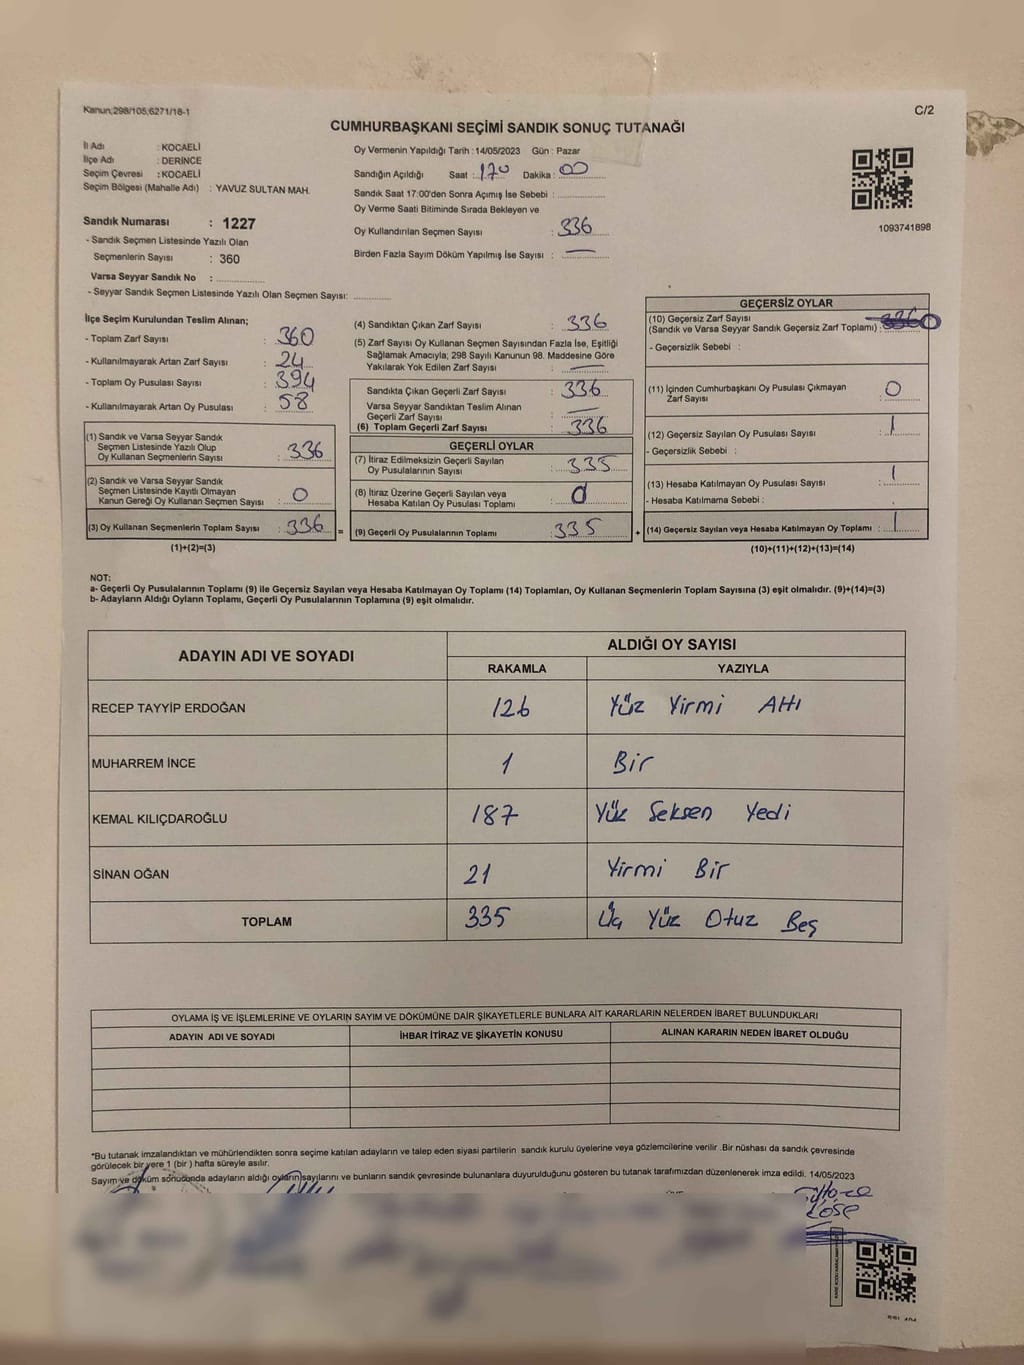 Kanun;298/105;6271/18-1
C/2
CUMHURBAŞKANI SEÇİMİ SANDIK SONUÇ TUTANAĞI
İl Adı : KOCAELİ
İlçe Adı : DERİNCE
Seçim Çevresi : KOCAELİ
Seçim Bölgesi (Mahalle Adı) : YAVUZ SULTAN MAH.
Sandık Numarası : 1227
- Sandık Seçmen Listesinde Yazılı Olan
Seçmenlerin Sayısı : 360
Varsa Seyyar Sandık No :
- Seyyar Sandık Seçmen Listesinde Yazılı Olan Seçmen Sayısı:
Oy Vermenin Yapıldığı Tarih : 14/05/2023 Gün : Pazar
Sandığın Açıldığı Saat : Dakika : 00
Sandık Saat 17:00'den Sonra Açımış İse Sebebi :
Oy Verme Saati Bitiminde Sırada Bekleyen ve
Oy Kullandırılan Seçmen Sayısı : 336
Birden Fazla Sayım Döküm Yapılmış İse Sayısı : —
1093741898
İlçe Seçim Kurulundan Teslim Alınan;
- Toplam Zarf Sayısı : 360
- Kullanılmayarak Artan Zarf Sayısı : 24
- Toplam Oy Pusulası Sayısı : 394
- Kullanılmayarak Artan Oy Pusulası : 58
(1) Sandık ve Varsa Seyyar Sandık
Seçmen Listesinde Yazılı Olup
Oy Kullanan Seçmenlerin Sayısı : 336
(2) Sandık ve Varsa Seyyar Sandık
Seçmen Listesinde Kayıtlı Olmayan
Kanun Gereği Oy Kullanan Seçmen Sayısı : 0
(3) Oy Kullanan Seçmenlerin Toplam Sayısı : 336 =
(1)+(2)=(3)
(4) Sandıktan Çıkan Zarf Sayısı : 336
(5) Zarf Sayısı Oy Kullanan Seçmen Sayısından Fazla İse, Eşitliği
Sağlamak Amacıyla; 298 Sayılı Kanunun 98. Maddesine Göre
Yakılarak Yok Edilen Zarf Sayısı : —
Sandıkta Çıkan Geçerli Zarf Sayısı : 336
Varsa Seyyar Sandıktan Teslim Alınan
Geçerli Zarf Sayısı : —
(6) Toplam Geçerli Zarf Sayısı : 336
GEÇERLİ OYLAR
(7) İtiraz Edilmeksizin Geçerli Sayılan
Oy Pusulalarının Sayısı : 335
(8) İtiraz Üzerine Geçerli Sayılan veya
Hesaba Katılan Oy Pusulası Toplamı : 0
(9) Geçerli Oy Pusulalarının Toplamı : 335 +
GEÇERSİZ OYLAR
(10) Geçersiz Zarf Sayısı
(Sandık ve Varsa Seyyar Sandık Geçersiz Zarf Toplamı) : 0
- Geçersizlik Sebebi :
(11) İçinden Cumhurbaşkanı Oy Pusulası Çıkmayan
Zarf Sayısı : 0
(12) Geçersiz Sayılan Oy Pusulası Sayısı : 1
- Geçersizlik Sebebi :
(13) Hesaba Katılmayan Oy Pusulası Sayısı : 1
- Hesaba Katılmama Sebebi :
(14) Geçersiz Sayılan veya Hesaba Katılmayan Oy Toplamı : 1
(10)+(11)+(12)+(13)=(14)
NOT:
a- Geçerli Oy Pusulalarının Toplamı (9) ile Geçersiz Sayılan veya Hesaba Katılmayan Oy Toplamı (14) Toplamları, Oy Kullanan Seçmenlerin Toplam Sayısına (3) eşit olmalıdır. (9)+(14)=(3)
b- Adayların Aldığı Oyların Toplamı, Geçerli Oy Pusulalarının Toplamına (9) eşit olmalıdır.
ADAYIN ADI VE SOYADI ALDIĞI OY SAYISI
RAKAMLA YAZIYLA
RECEP TAYYİP ERDOĞAN 126 Yüz Yirmi Altı
MUHARREM İNCE 1 Bir
KEMAL KILIÇDAROĞLU 187 Yük Seksen Yedi
SİNAN OĞAN 21 Yirmi Bir
TOPLAM 335 Üç Yüz Otuz Beş
OYLAMA İŞ VE İŞLEMLERİNE VE OYLARIN SAYIM VE DÖKÜMÜNE DAİR ŞİKAYETLERLE BUNLARA AİT KARARLARIN NELERDEN İBARET BULUNDUKLARI
ADAYIN ADI VE SOYADI İHBAR İTİRAZ VE ŞİKAYETİN KONUSU ALINAN KARARIN NEDEN İBARET OLDUĞU
*Bu tutanak imzalandıktan ve mühürlendikten sonra seçime katılan adayların ve talep eden siyasi partilerin sandık kurulu üyelerine veya gözlemcilerine verilir .Bir nüshası da sandık çevresinde
görülecek bir yere 1 (bir ) hafta süreyle asılır.
Sayım ve döküm sonucunda adayların aldığı oyların sayılarını ve bunların sandık çevresinde bulunanlara duyurulduğunu gösteren bu tutanak tarafımızdan düzenlenerek imza edildi. 14/05/2023